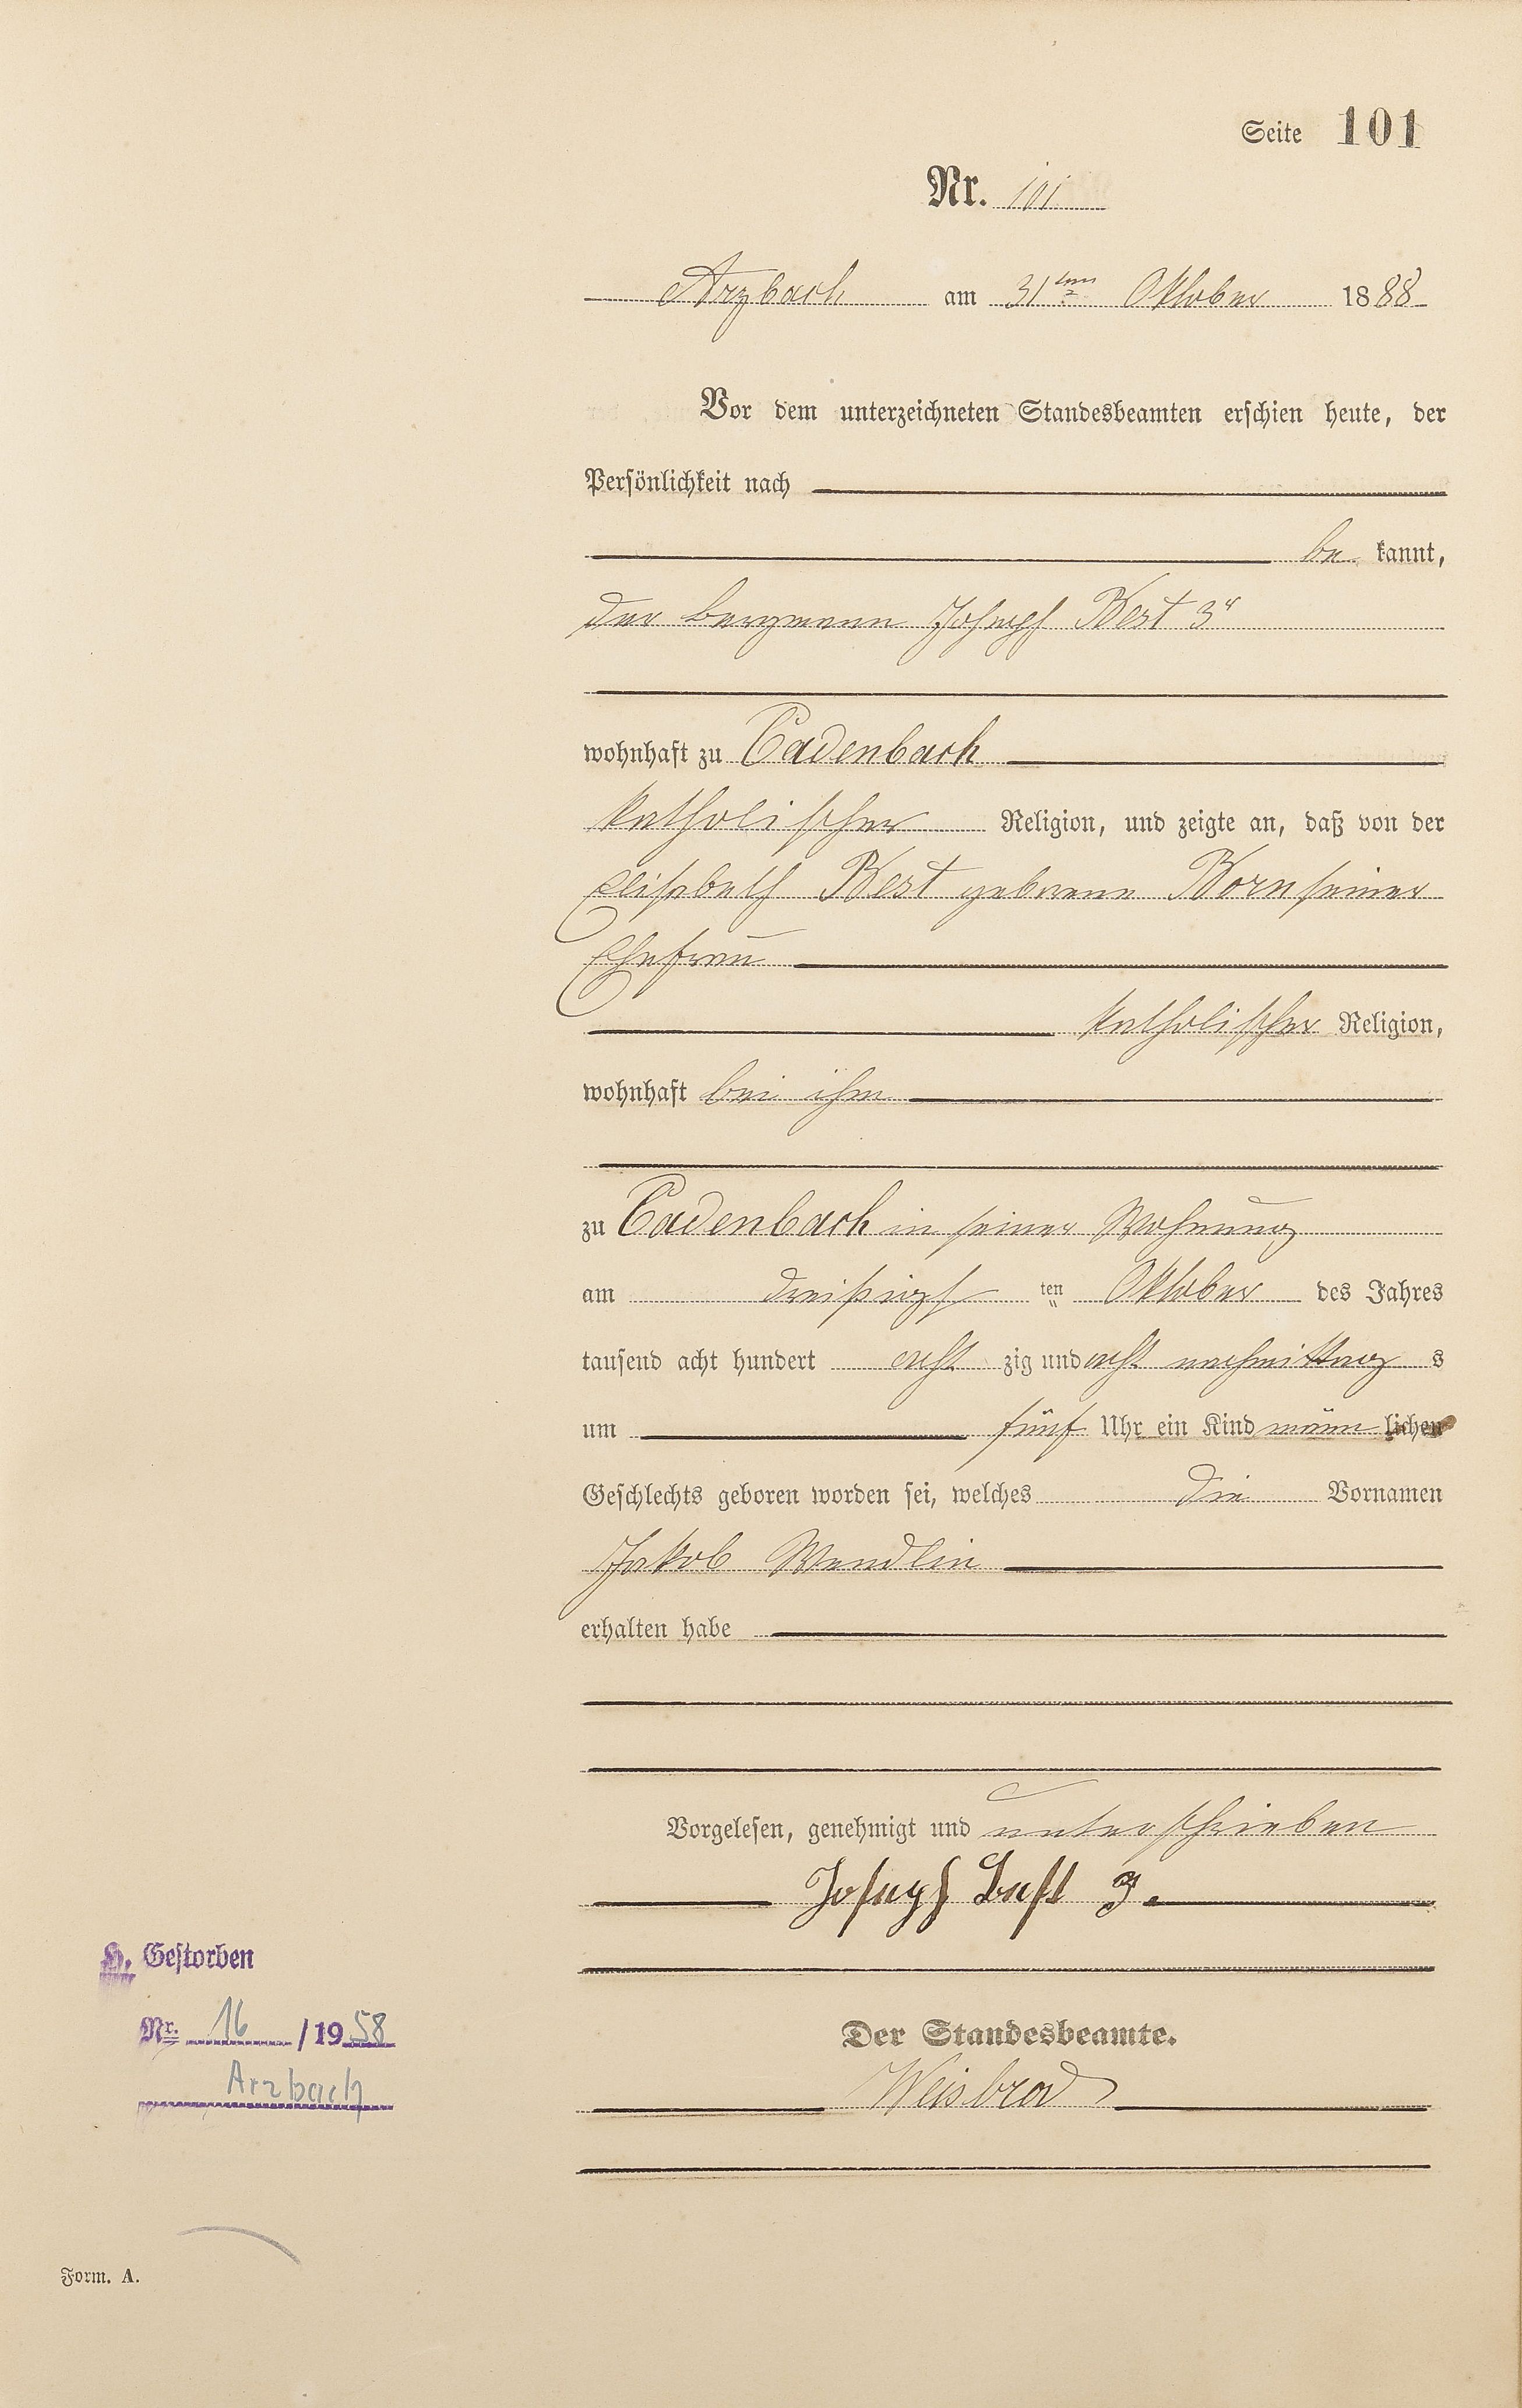 Seite 101
Nr. 101
Arzbach am 31ten Oktober 1888
Vor dem unterzeichneten Standesbeamten erschien heute, der
Persönlichkeit nach
be kannt,
der Bergmann Joseph Best 3r
wohnhaft zu Cadenbach
katholischer Religion, und zeigte an, daß von der
Elisabeth Best geborene Born seiner
Ehefrau
katholischer Religion,
wohnhaft bei ihm
zu Cadenbach in seiner Wohnung
am dreißigsten Oktober des Jahres
tausend acht hundert acht zig und acht nachmittag s
um fünf Uhr ein Kind männ lichen
Geschlechts geboren worden sei, welches die Vornamen
Jakob Wendlin
erhalten habe
Vorgelesen, genehmigt und unterschrieben
Joseph Best 3.
Der Standesbeamte.
Weisbrod
H. Gestorben
Nr. 16 /1958
Arzbach
Form. A.